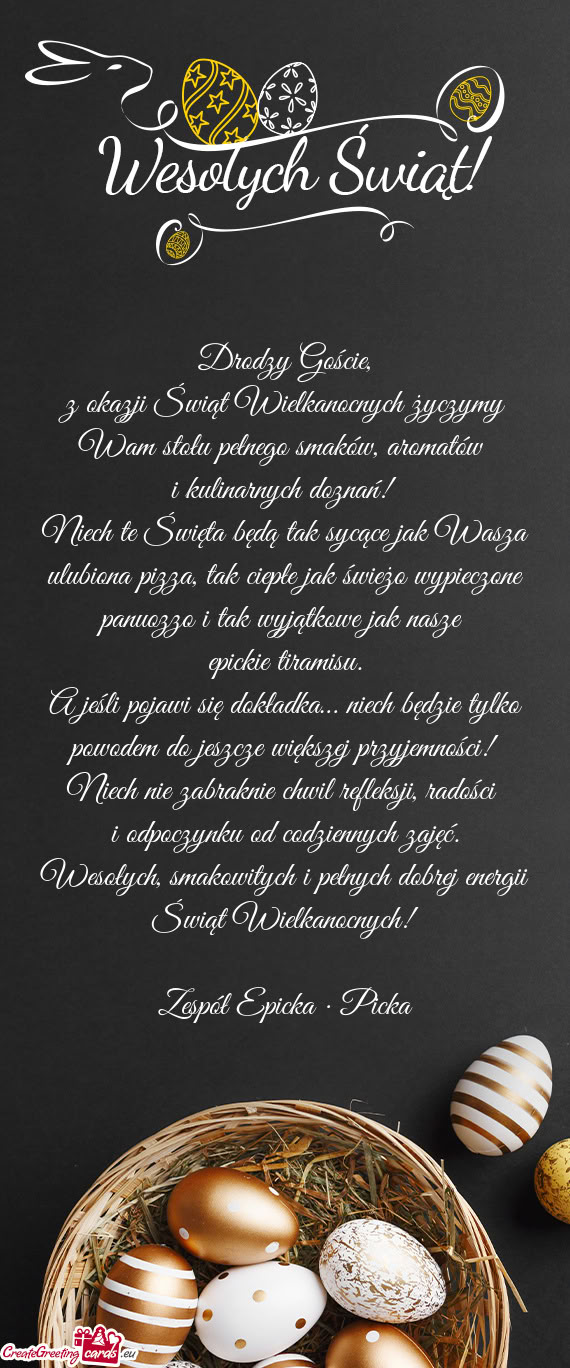 Wesołych Świąt!
Drodzy Goście,
z okazji Świąt Wielkanocnych życzymy
Wam stołu pełnego smaków, aromatów
i kulinarnych doznań!
Niech te Święta będą tak sycące jak Wasza
ulubiona pizza, tak ciepłe jak świeżo wypieczone
panuozzo i tak wyjątkowe jak nasze
epickie tiramisu.
A jeśli pojawi się dokładka... niech będzie tylko
powodem do jeszcze większej przyjemności!
Niech nie zabraknie chwil refleksji, radości
i odpoczynku od codziennych zajęć.
Wesołych, smakowitych i pełnych dobrej energii
Świąt Wielkanocnych!
Zespół Epicka · Picka
CreateGreetingcards.eu